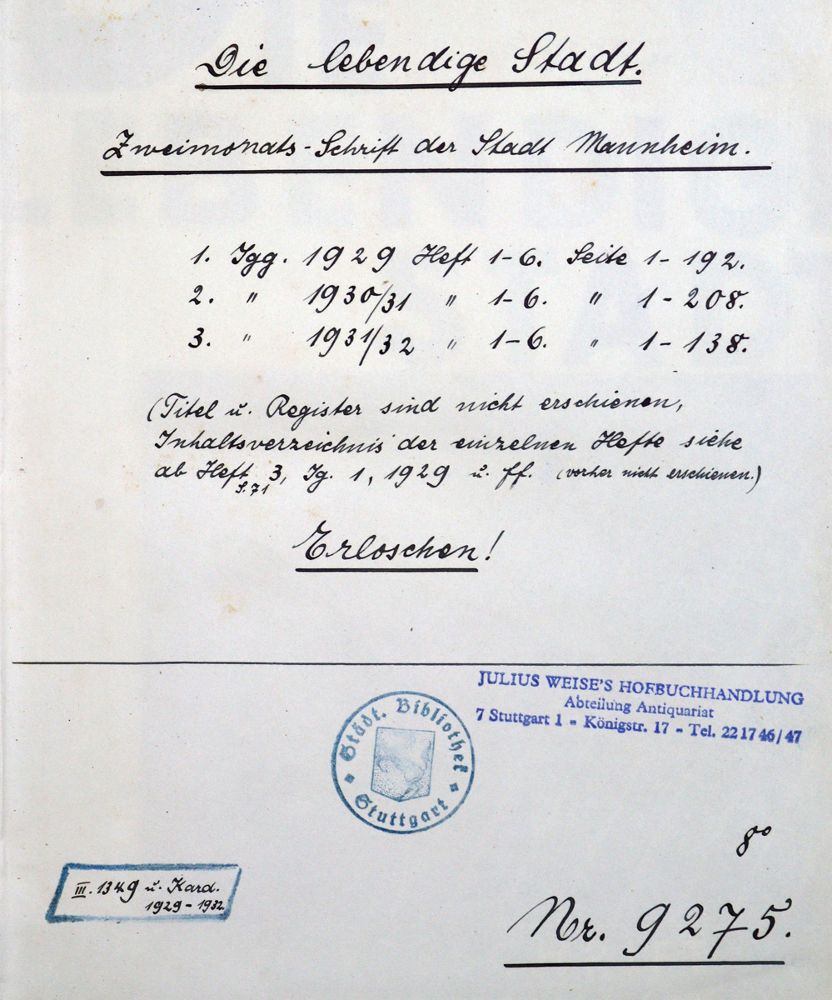 Die lebendige Stadt.
Zweimonats-Schrift der Stadt Mannheim.
1. Jgg. 1929 Heft 1-6. Seite 1-192.
2. " 1930/31 " 1-6. " 1-208.
3. " 1931/32 " 1-6. " 1-138.
(Titel u. Register sind nicht erschienen,
Inhaltsverzeichnis der einzelnen Hefte siehe
ab Heft 3, Jg. 1, 1929 u. ff. (vorher nicht erschienen.)
S. 71
Erloschen!
JULIUS WEISE'S HOFBUCHHANDLUNG
Abteilung Antiquariat
7 Stuttgart 1 - Königstr. 17 - Tel. 221746/47
Städt. Bibliothek
Stuttgart
8°
III. 1349 u. Kard.
1929-1932
Nr. 9275.